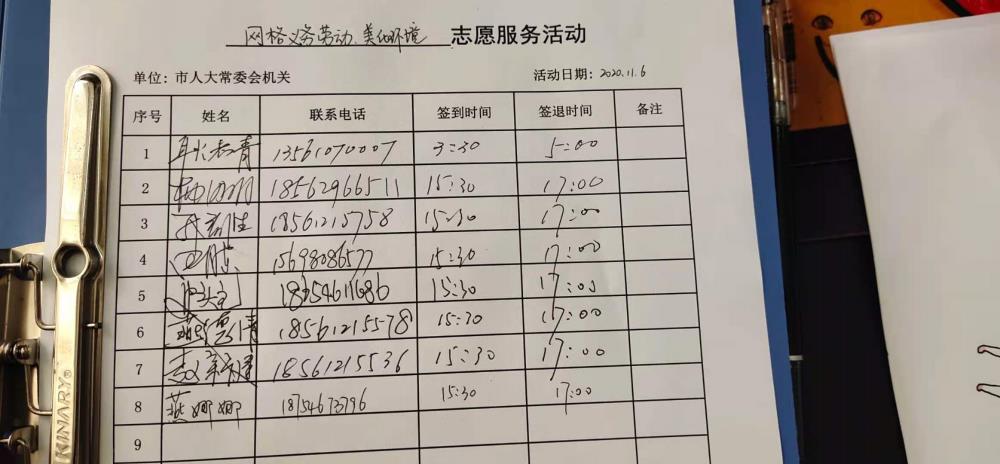 网格义务劳动、美化环境 志愿服务活动
单位：市人大常委会机关 活动日期：2020.11.6
序号 姓名 联系电话 签到时间 签退时间 备注
1 13561070007 3:30 5:00
2 18562966511 15:30 17:00
3 18561215758 15:30 17:00
4 15698086577 15:30 17:00
5 15:30 17:00
6 18561215578 15:30 17:00
7 18561215536 15:30 17:00
8 燕娜娜 18754673796 15:30 17:00
9
KINARY